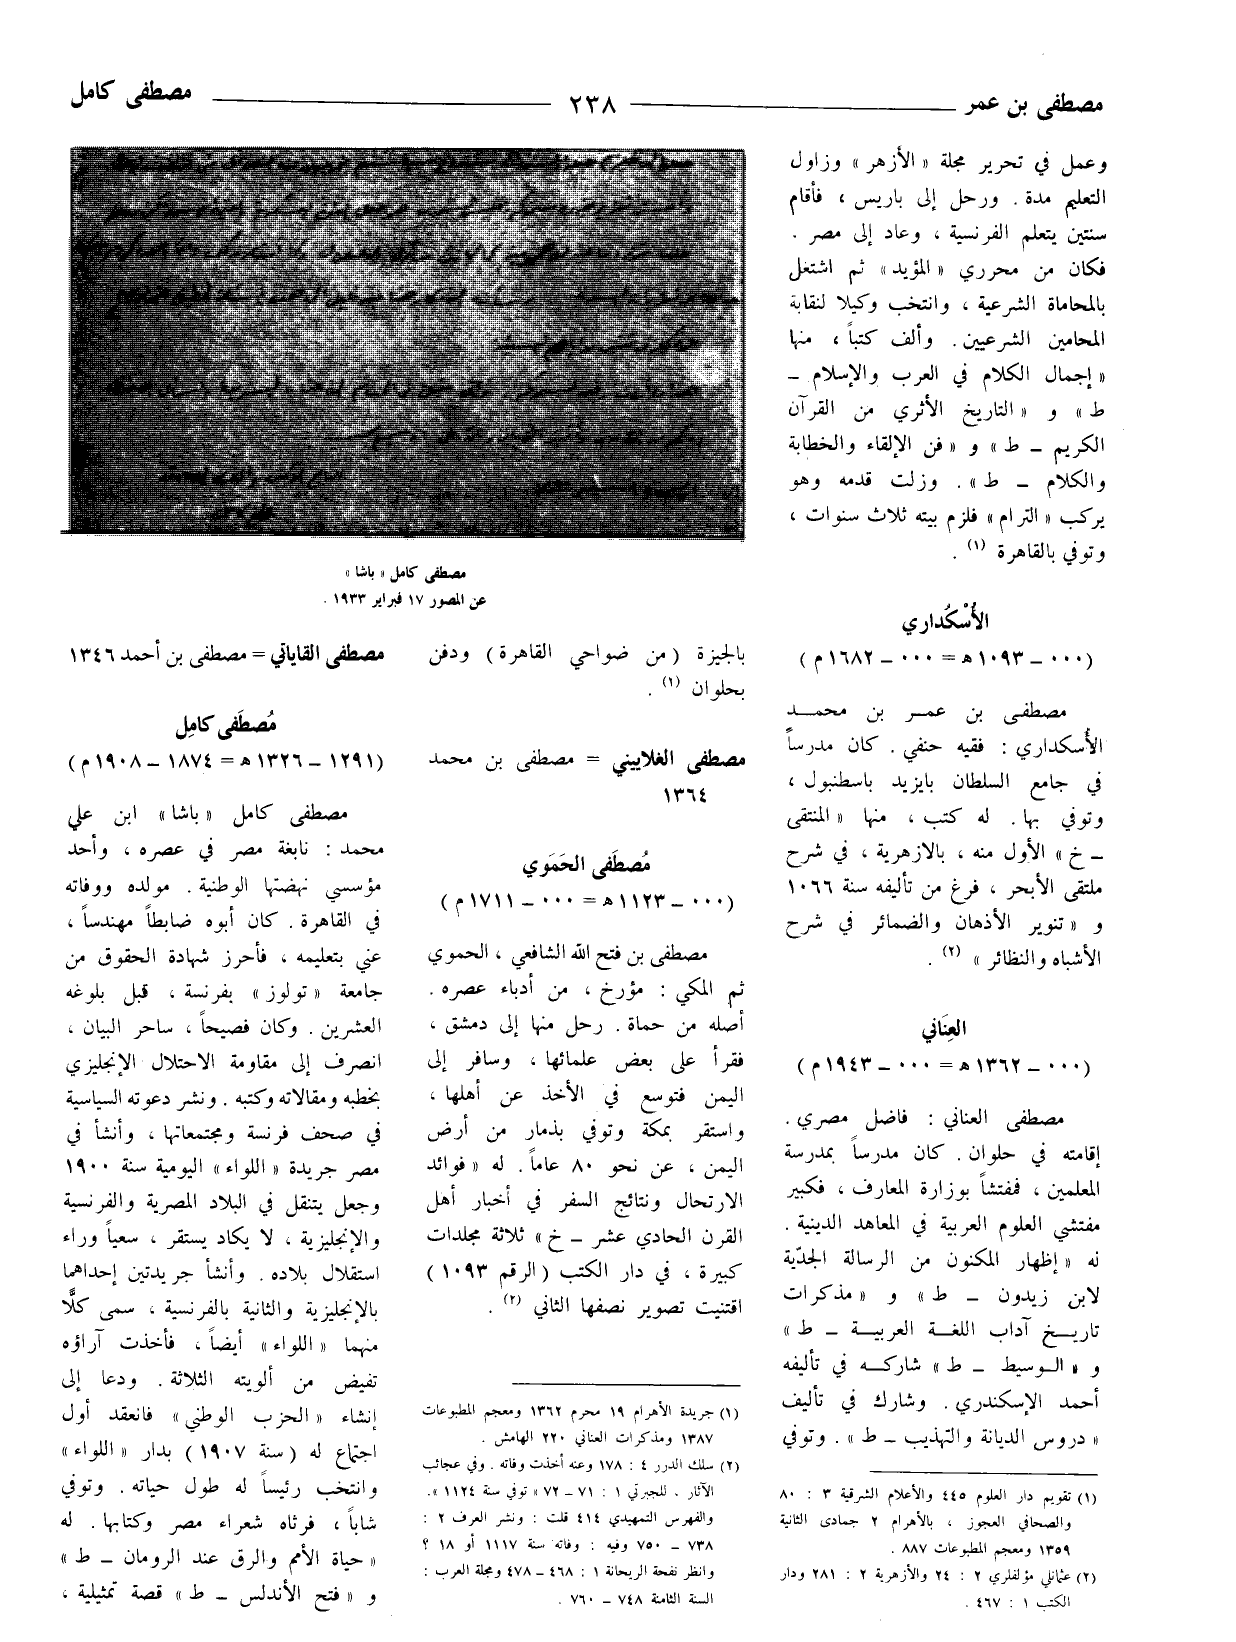 مصطفى بن عمر
٢٣٨
مصطفى كامل
وعمل في تحرير مجلة « الأزهر » وزاول
التعليم مدة . ورحل إلى باريس ، فأقام
سنتين يتعلم الفرنسية ، وعاد إلى مصر .
فكان من محرري « المؤيد » ثم اشتغل
بالمحاماة الشرعية ، وانتخب وكيلا لنقابة
المحامين الشرعيين . وألف كتباً ، منها
« إجمال الكلام في العرب والإسلام ـ
ط » و « التاريخ الأثري من القرآن
الكريم ـ ط » و « فن الإلقاء والخطابة
والكلام ـ ط » . وزلت قدمه وهو
يركب « الترام » فلزم بيته ثلاث سنوات ،
وتوفي بالقاهرة (١) .
الأُسْكُداري
(٠٠٠ ـ ١٠٩٣ هـ = ٠٠٠ ـ ١٦٨٢ م)
مصطفى بن عمر بن محمد
الأُسكداري : فقيه حنفي . كان مدرساً
في جامع السلطان بايزيد باسطنبول ،
وتوفي بها . له كتب ، منها « المنتقى
ـ خ » الأول منه ، بالازهرية ، في شرح
ملتقى الأبحر ، فرغ من تأليفه سنة ١٠٦٦
و « تنوير الأذهان والضمائر في شرح
الأشباه والنظائر » (٢) .
العِنَاني
(٠٠٠ ـ ١٣٦٢ هـ = ٠٠٠ ـ ١٩٤٣ م)
مصطفى العناني : فاضل مصري .
إقامته في حلوان . كان مدرساً بمدرسة
المعلمين ، فمفتشاً بوزارة المعارف ، فكبير
مفتشي العلوم العربية في المعاهد الدينية .
له « إظهار المكنون من الرسالة الجدّية
لابن زيدون ـ ط » و « مذكرات
تاريخ آداب اللغة العربية ـ ط »
و « الوسيط ـ ط » شاركه في تأليفه
أحمد الإسكندري . وشارك في تأليف
« دروس الديانة والتهذيب ـ ط » . وتوفي
(١) تقويم دار العلوم ٤٤٥ والأعلام الشرقية ٣ : ٨٠
والصحافي العجوز ، بالأهرام ٢ جمادى الثانية
١٣٥٩ ومعجم المطبوعات ٨٨٧ .
(٢) عثمانلي مؤلفلري ٢ : ٢٤ والأزهرية ٢ : ٢٨١ ودار
الكتب ١ : ٤٦٧ .
مصطفى كامل « باشا »
عن المصور ١٧ فبراير ١٩٣٣ .
بالجيزة (من ضواحي القاهرة) ودفن
بحلوان (١) .
مصطفى الغلاييني = مصطفى بن محمد
١٣٦٤
مُصْطَفى الحَمَوي
(٠٠٠ ـ ١١٢٣ هـ = ٠٠٠ ـ ١٧١١ م)
مصطفى بن فتح الله الشافعي ، الحموي
ثم المكي : مؤرخ ، من أدباء عصره .
أصله من حماة . رحل منها إلى دمشق ،
فقرأ على بعض علمائها ، وسافر إلى
اليمن فتوسع في الأخذ عن أهلها ،
واستقر بمكة وتوفي بذمار من أرض
اليمن ، عن نحو ٨٠ عاماً . له « فوائد
الارتحال ونتائج السفر في أخبار أهل
القرن الحادي عشر ـ خ » ثلاثة مجلدات
كبيرة ، في دار الكتب (الرقم ١٠٩٣)
اقتنيت تصوير نصفها الثاني (٢) .
(١) جريدة الأهرام ١٩ محرم ١٣٦٢ ومعجم المطبوعات
١٣٨٧ ومذكرات العناني ٢٢٠ الهامش .
(٢) سلك الدرر ٤ : ١٧٨ وعنه أخذت وفاته . وفي عجائب
الآثار ، للجبرتي ١ : ٧١ ـ ٧٢ « توفي سنة ١١٢٤ » .
والفهرس التمهيدي ٤١٤ قلت : ونشر العرف ٢ :
٧٣٨ ـ ٧٥٠ وفيه : وفاته سنة ١١١٧ أو ١٨ ؟
وانظر نفحة الريحانة ١ : ٤٦٨ ـ ٤٧٨ ومجلة العرب :
السنة الثامنة ٧٤٨ ـ ٧٦٠ .
مصطفى القاياتي = مصطفى بن أحمد ١٣٤٦
مُصطَفى كامِل
(١٢٩١ ـ ١٣٢٦ هـ = ١٨٧٤ ـ ١٩٠٨ م)
مصطفى كامل « باشا » ابن علي
محمد : نابغة مصر في عصره ، وأحد
مؤسسي نهضتها الوطنية . مولده ووفاته
في القاهرة . كان أبوه ضابطاً مهندساً ،
عني بتعليمه ، فأحرز شهادة الحقوق من
جامعة « تولوز » بفرنسة ، قبل بلوغه
العشرين . وكان فصيحاً ، ساحر البيان ،
انصرف إلى مقاومة الاحتلال الإنجليزي
بخطبه ومقالاته وكتبه . ونشر دعوته السياسية
في صحف فرنسة ومجتمعاتها ، وأنشأ في
مصر جريدة « اللواء » اليومية سنة ١٩٠٠
وجعل يتنقل في البلاد المصرية والفرنسية
والإنجليزية ، لا يكاد يستقر ، سعياً وراء
استقلال بلاده . وأنشأ جريدتين إحداهما
بالإنجليزية والثانية بالفرنسية ، سمى كلًّا
منهما « اللواء » أيضاً ، فأخذت آراؤه
تفيض من ألويته الثلاثة . ودعا إلى
إنشاء « الحزب الوطني » فانعقد أول
اجتماع له (سنة ١٩٠٧) بدار « اللواء »
وانتخب رئيساً له طول حياته . وتوفي
شاباً ، فرثاه شعراء مصر وكتابها . له
« حياة الأمم والرق عند الرومان ـ ط »
و « فتح الأندلس ـ ط » قصة تمثيلية ،